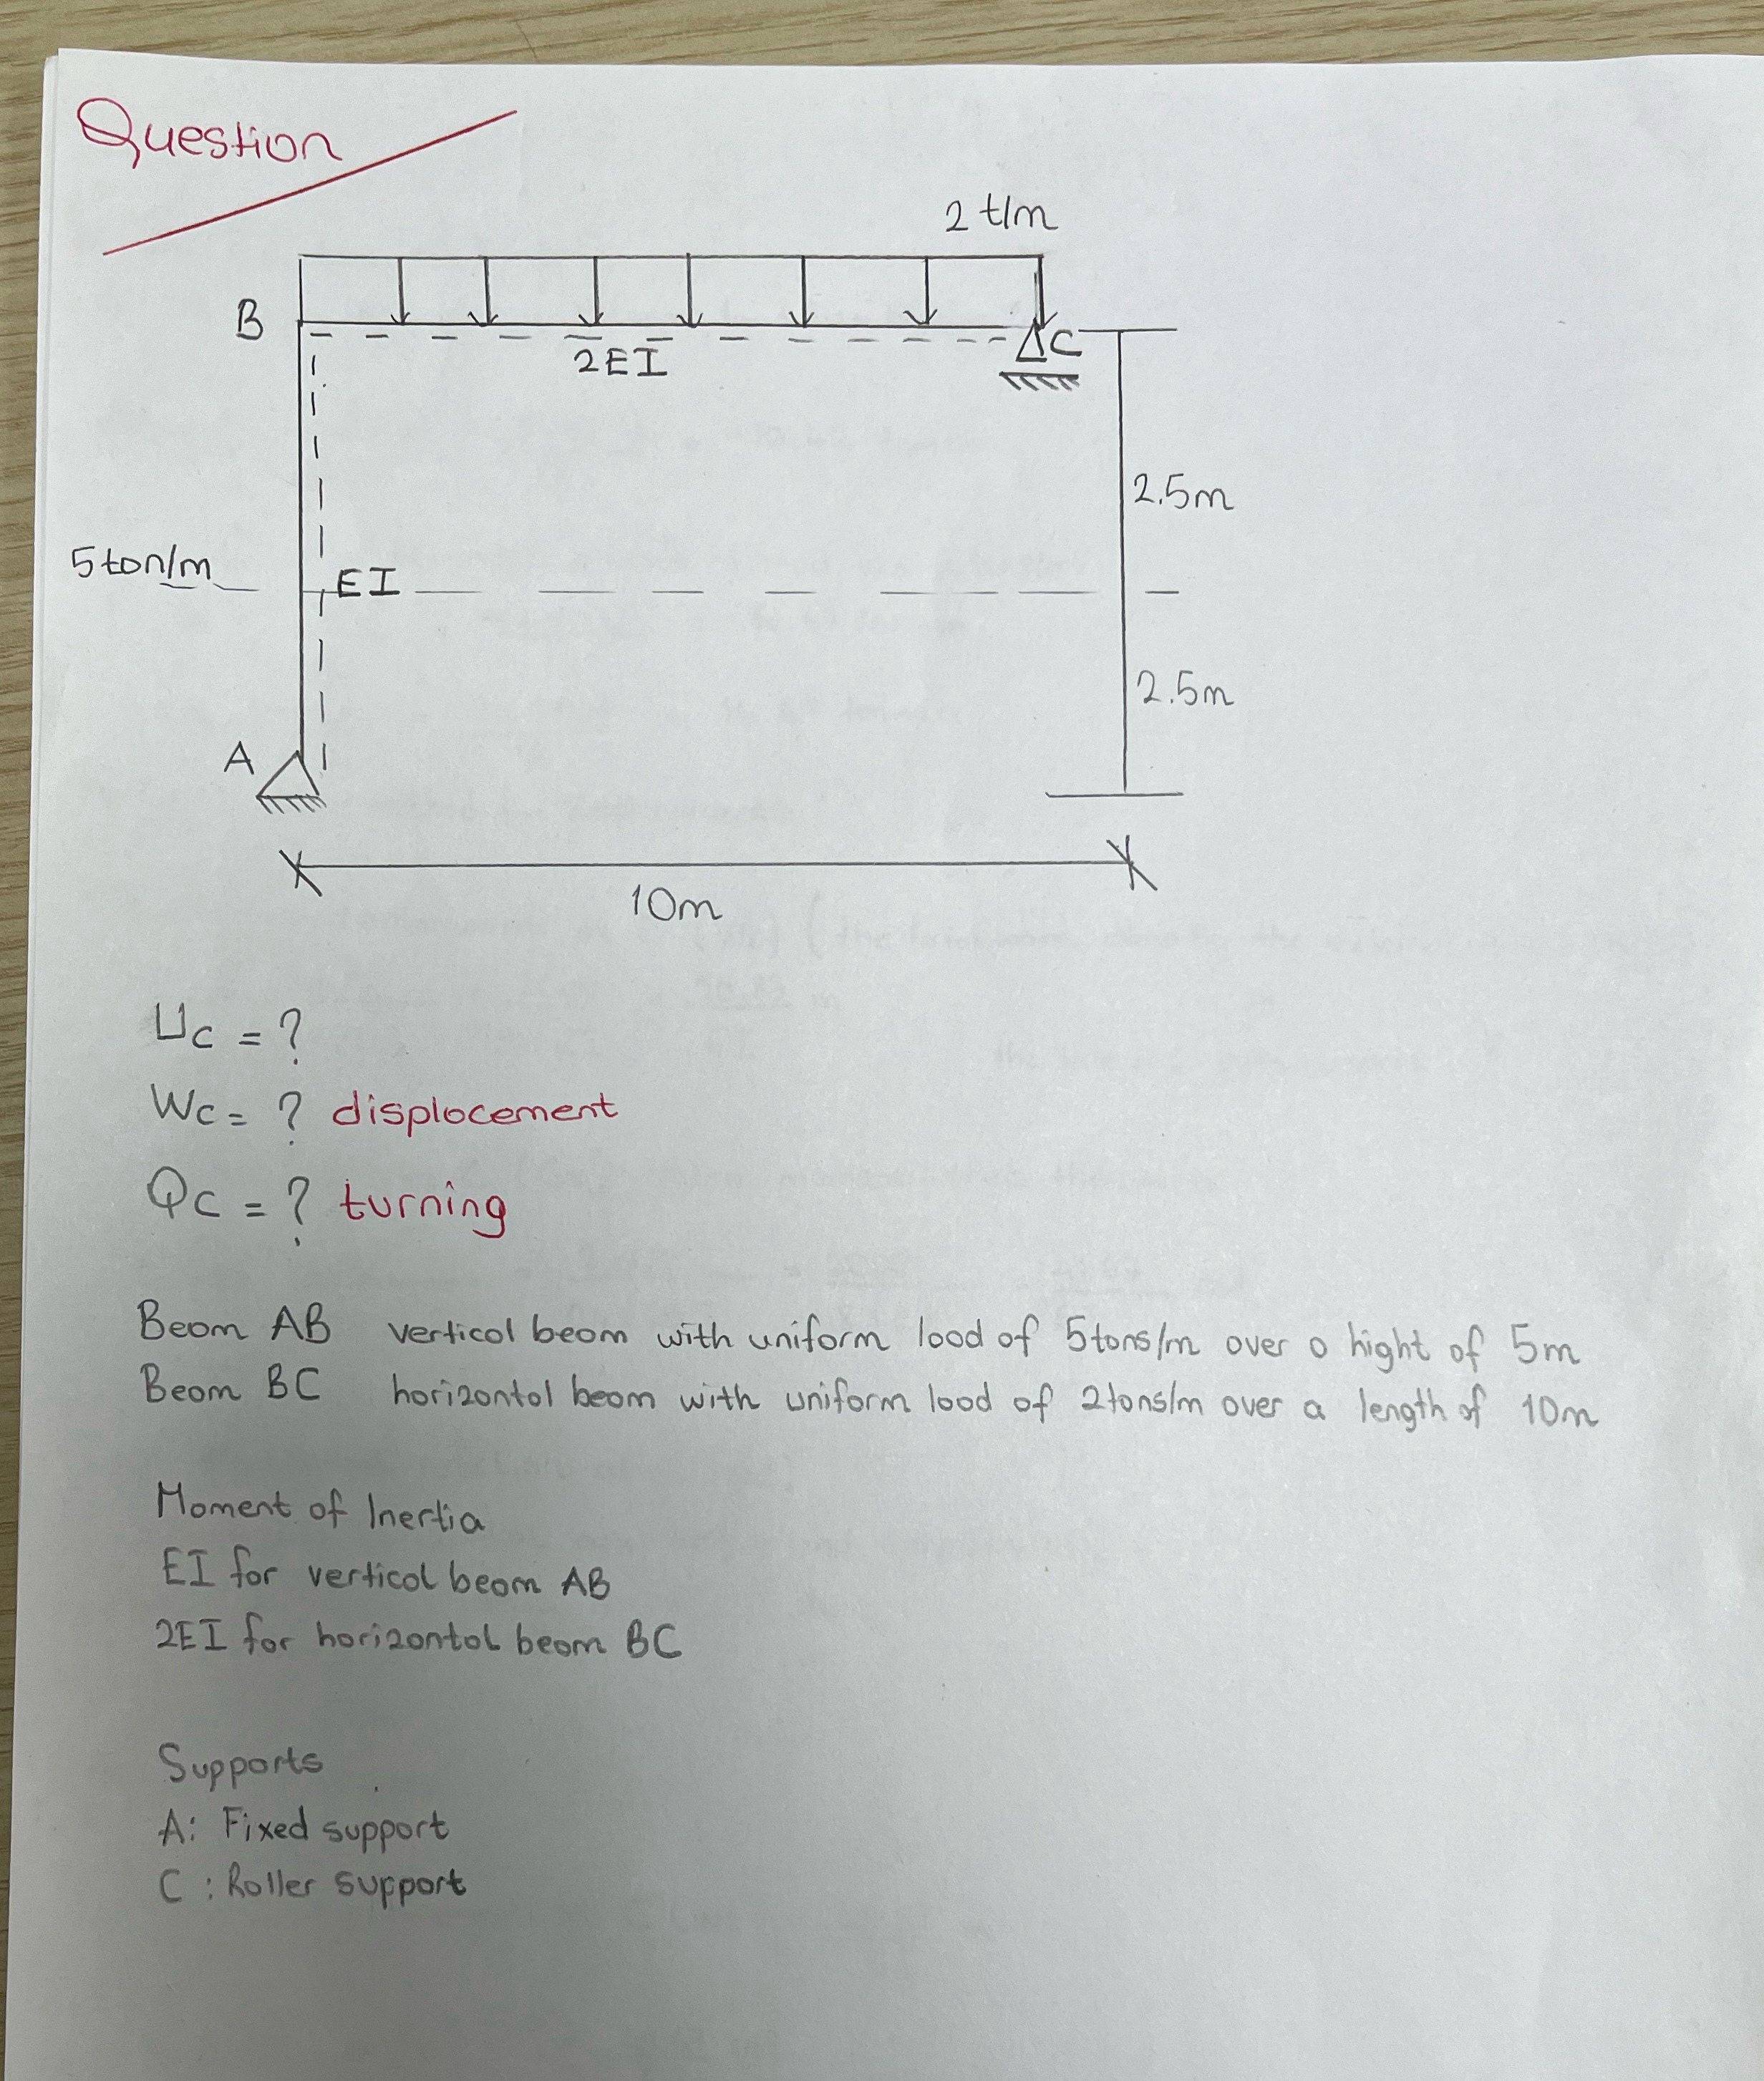 Question
2 t/m
B
2EI
C
2.5m
5ton/m
EI
2.5m
A
10m
Uc = ?
Wc = ? displacement
Qc = ? turning
Beam AB vertical beam with uniform load of 5tons/m over a hight of 5m
Beam BC horizontal beam with uniform load of 2tons/m over a length of 10m
Moment of Inertia
EI for vertical beam AB
2EI for horizontal beam BC
Supports
A: Fixed support
C : Roller support